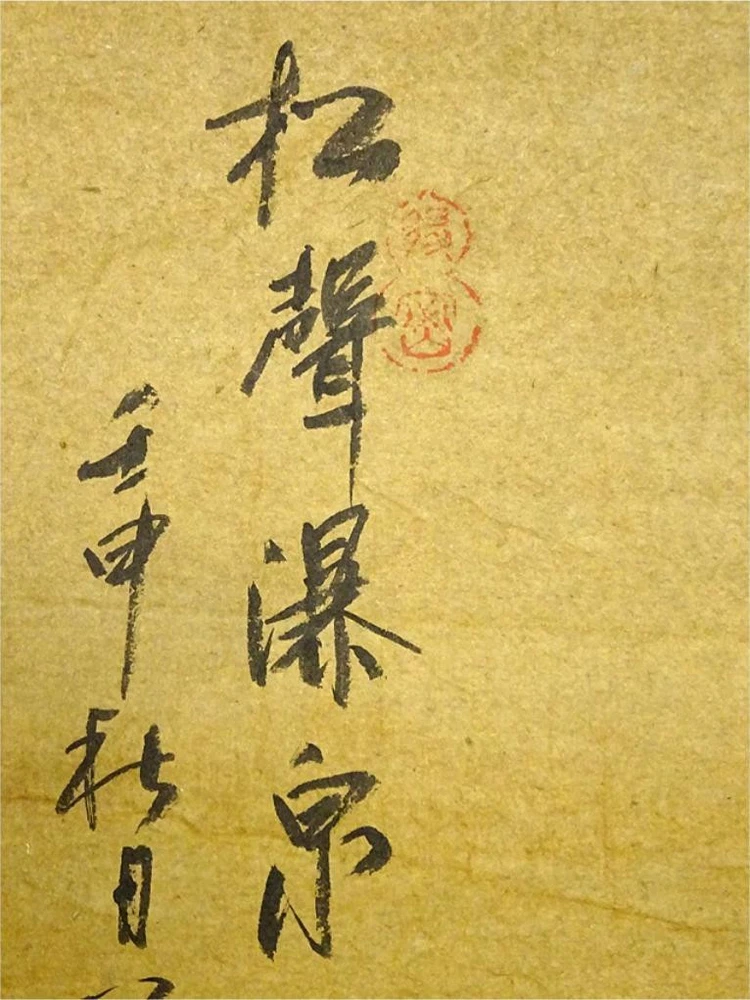 松聲瀑泉
壬申秋日